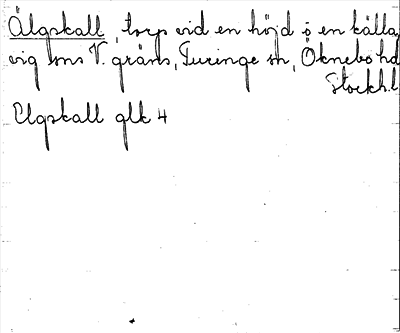 Älgskall, torp vid en höjd ö en källa,
vig sns V. gräns, Turinge sn, Öknebo hd
Stockh. l.
Elgskall glk 4